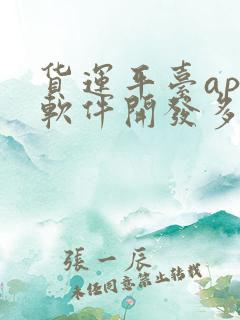 货運平臺ap
軟件開發多
張一辰
未任同意禁止转载